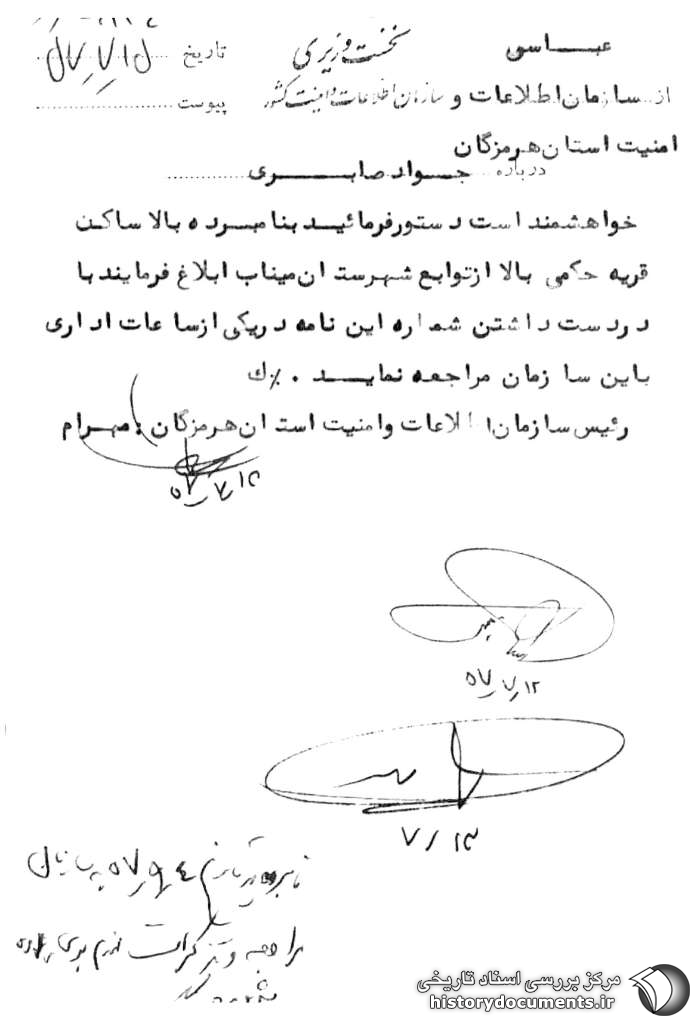 عباسی
نخست وزیری
تاریخ
از سازمان اطلاعات و سازمان اطلاعات و امنیت کشور پیوست
امنیت استان هرمزگان
درباره جواد صابری
خواهشمند است دستور فرمائید بنامبرده بالا ساکن
قریه حکمی بالا از توابع شهرستان میناب ابلاغ فرمایند با
در دست داشتن شماره این نامه در یکی از ساعات اداری
باین سازمان مراجعه نماید . %ك
رئیس سازمان اطلاعات و امنیت استان هرمزگان . مهرام
۵۷٫۷٫۱۲
۵۷٫۷٫۱۲
۷٫۱۳
نامبرده در تاریخ
مراجعه و تذکرات لازم بوی داده
مرکز بررسی اسناد تاریخی
historydocuments.ir